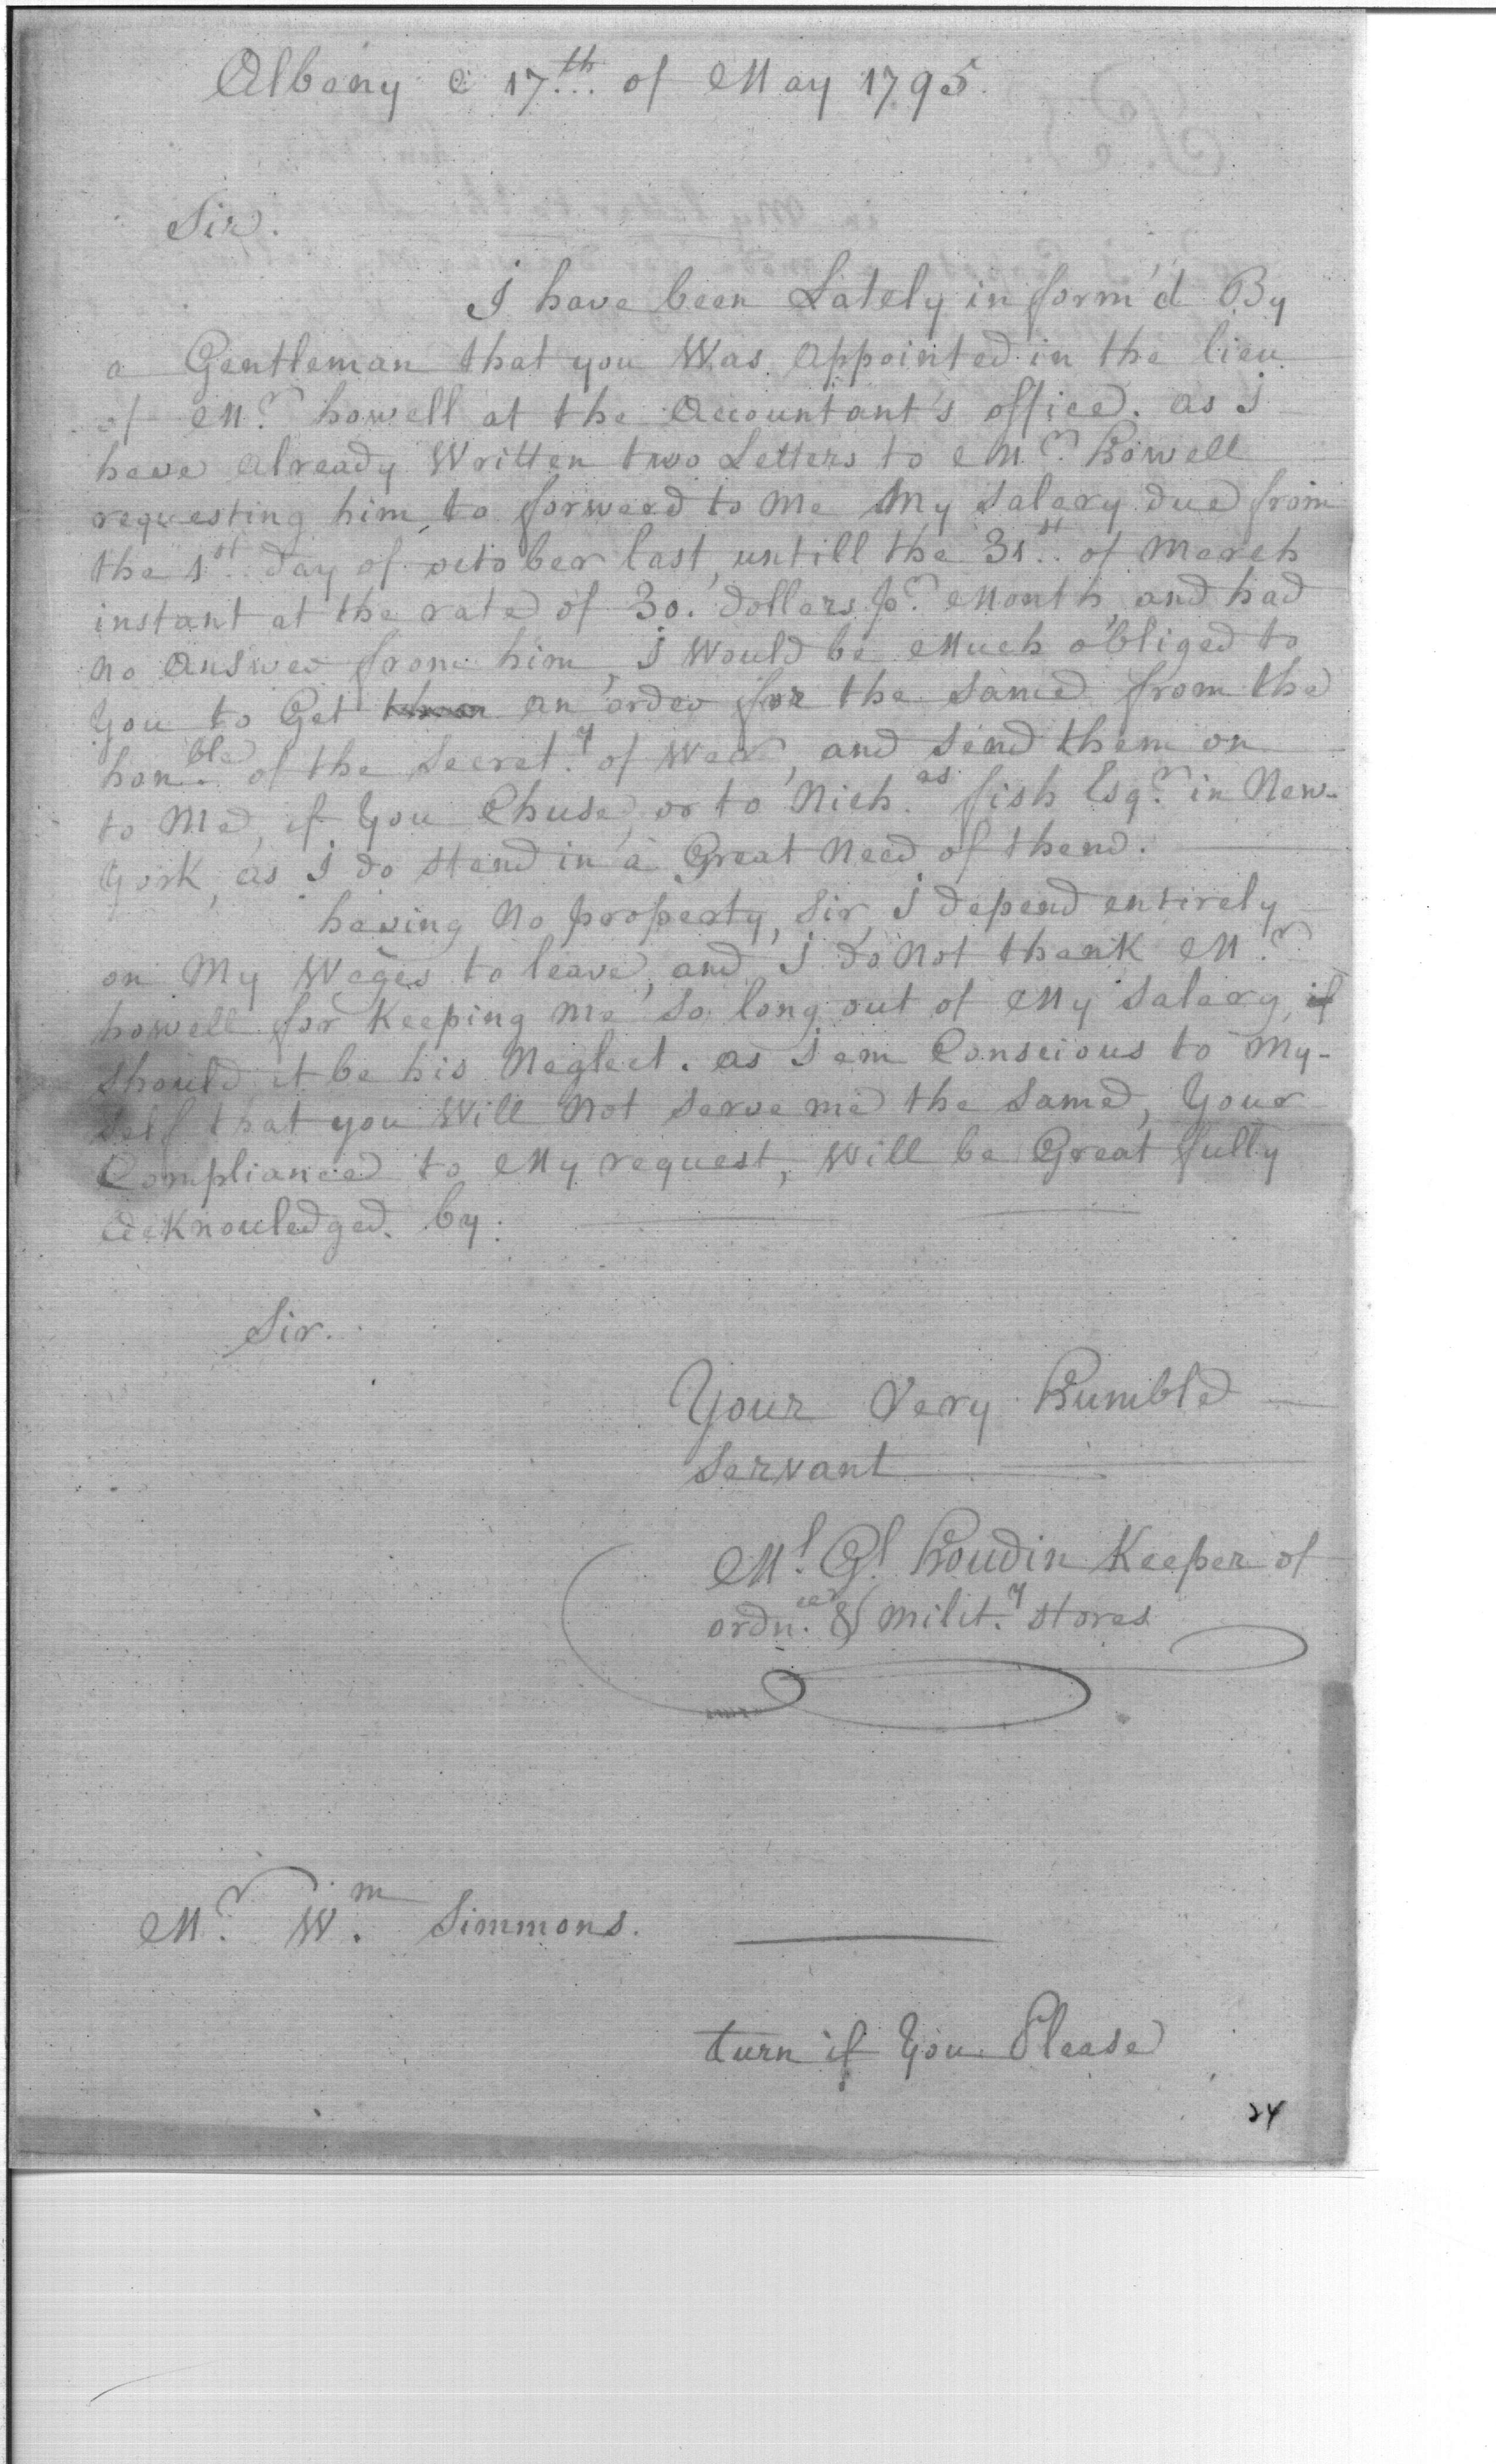 Albany e 17th of May 1795.
Sir.
I have been Lately in form'd By
a Gentleman that you Was appointed in the lieu
of Mr howell at the Accountant's office. as I
have already Written two Letters to Mr Howell
requesting him to forward to me My salary due from
the 1st day of october last, untill the 31st of March
instant at the rate of 30. dollars pr Month, and had
no answer from him, I would be Much obliged to
you to Get an order for the same from the
honble of the Secrety of War, and send them on
to Me, if you Chuse, or to Nichas fish Esqr in New-
york, as I do stand in a Great Need of them.
having No property, Sir, I depend entirely
on My Wages to leave, and I do Not thank Mr
howell for Keeping Me so long out of My salary, if
should it be his Neglect. as I am Conscious to My-
self that you Will Not serve me the same, Your
Compliance to My request, Will be Great fully
acknowledged. by.
Sir.
Your Very Humble
Servant
Ml. Gl. Houdin Keeper of
ordn.ce & milit.y stores
Mr Wm Simmons.
turn if You Please
24